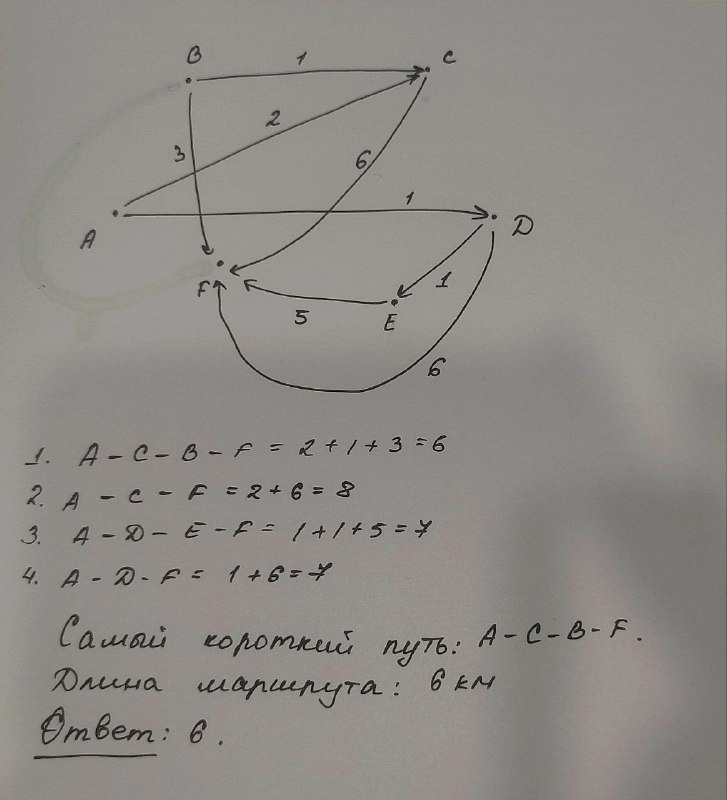 B 1 C
2
3 6
1
A D
F 1
5 E
6
1. A - C - B - F = 2 + 1 + 3 = 6
2. A - C - F = 2 + 6 = 8
3. A - D - E - F = 1 + 1 + 5 = 7
4. A - D - F = 1 + 6 = 7
Самый короткий путь: A - C - B - F.
Длина маршрута: 6 км
Ответ: 6.